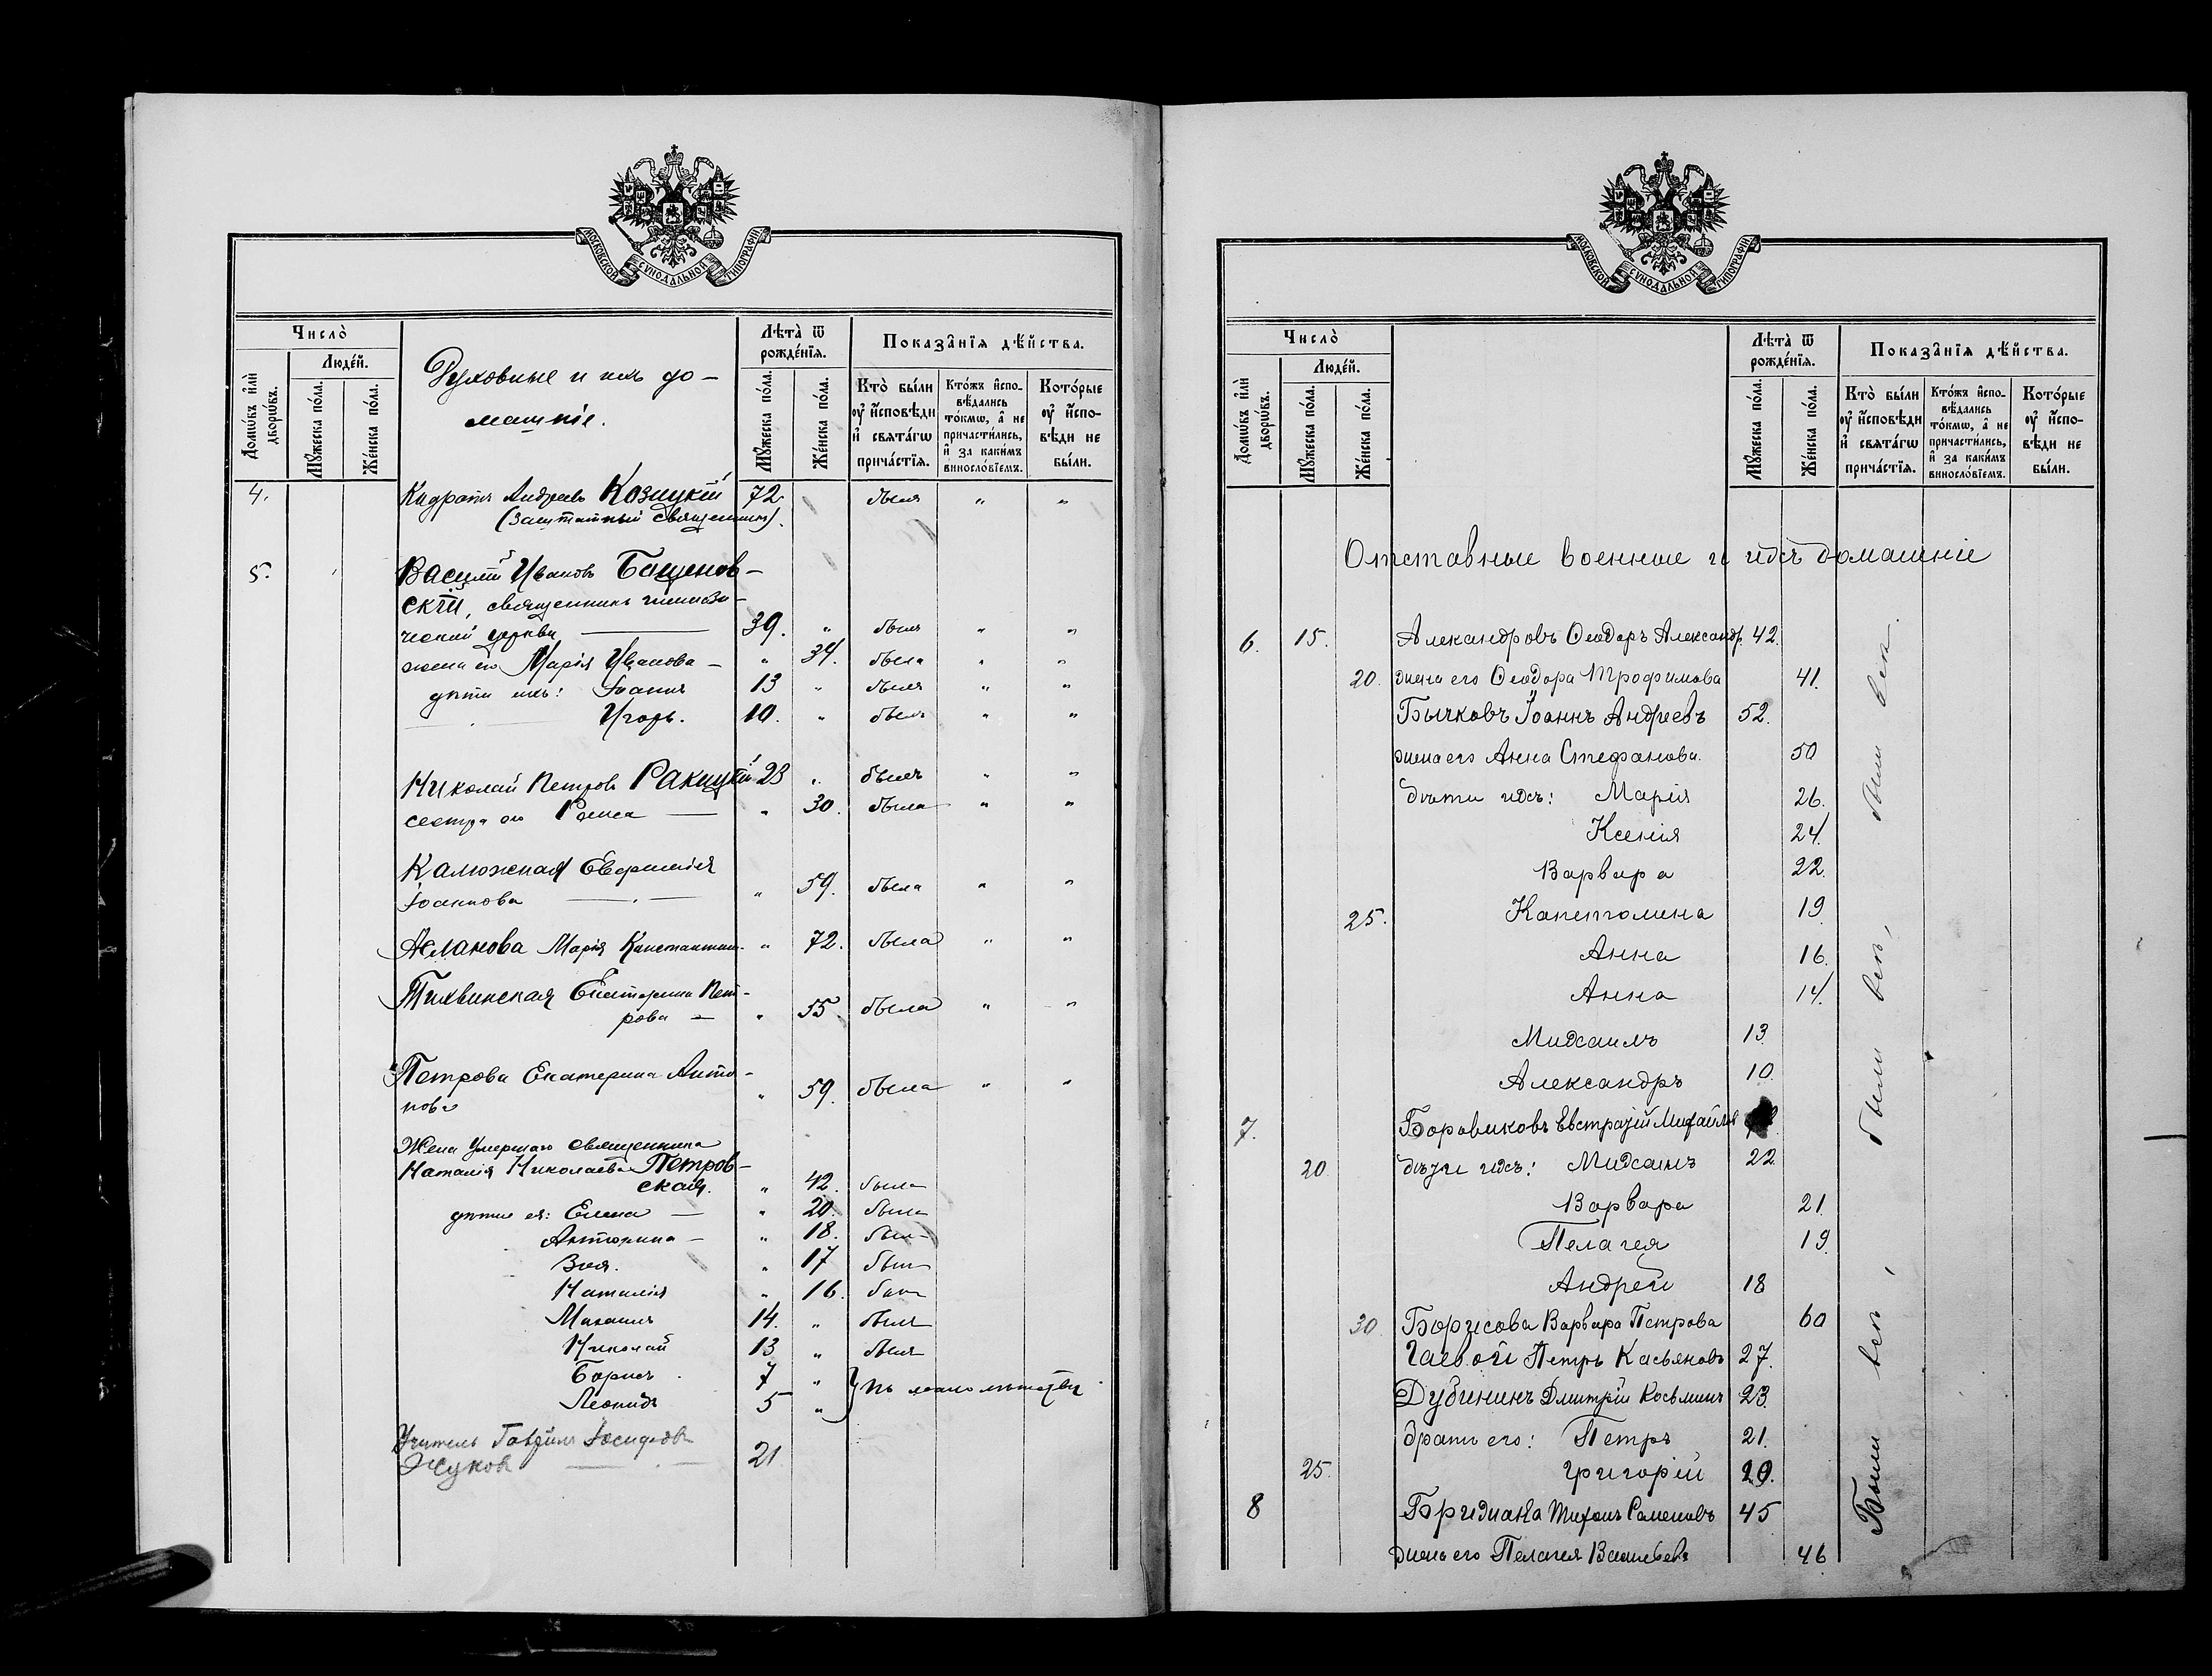 МОСКОВСКОЙ СУНОДАЛЬНОЙ ТИПОГРАФІИ
Число̀
Люде́й.
Домѡ́въ и҆лѝ дворѡ́въ.
Мꙋ́жеска по́ла.
Же́нска по́ла.
Духовные и ихъ до-
машніе.
Лѣта̀ ѿ рожде́нїѧ.
Мꙋ́жеска по́ла.
Же́нска по́ла.
Показа̑нїѧ дѣ́йства.
Кто̀ бы́ли ᲂу҆ и҆сповѣди и҆ свѧта́гѡ прича́стїѧ.
Кто́жъ и҆спо-вѣ́дались то́кмѡ, а҆ не причасти́лись, и҆ за каки́мъ виносло́вїемъ.
Кото́рые ᲂу҆ и҆спо-вѣди не бы́ли.
4. Кидратъ Андреевъ Козицкій 72. былъ " "
(заштатный священникъ).
5. Василій Ивановъ Баженов-
скій, священникъ гимнази-
ческой церкви 39. " былъ " "
жена его Марія Иванова - " 34. была " "
дѣти ихъ: Іоаннъ 13 " былъ " "
Игорь. 10. " былъ " "
Николай Петровъ Ракицкій 23 " былъ " "
сестра его Раиса " 30. была " "
Калюжная Евфимія
Іоаннова " 59. была " "
Асланова Марія Константин. " 72. была " "
Тихвинская Екатерина Пет-
рова " 55 была " "
Петрова Екатерина Анто-
нова " 59. была " "
Жена умершаго священника
Наталія Николаева Петров-
ская. " 42. была
дѣти ея: Елена " 20. была
Антонина - " 18. была
Зоя. " 17 была
Наталія " 16. была
Михаилъ 14. " былъ
Николай 13 " былъ
Борисъ 7 "
Леонидъ 5 " } по малолѣтству
Учитель Гавріилъ Іосифовъ
Жуковъ 21
МОСКОВСКОЙ СУНОДАЛЬНОЙ ТИПОГРАФІИ
Число̀
Люде́й.
Домѡ́въ и҆лѝ дворѡ́въ.
Мꙋ́жеска по́ла.
Же́нска по́ла.
Лѣта̀ ѿ рожде́нїѧ.
Мꙋ́жеска по́ла.
Же́нска по́ла.
Показа̑нїѧ дѣ́йства.
Кто̀ бы́ли ᲂу҆ и҆сповѣди и҆ свѧта́гѡ прича́стїѧ.
Кто́жъ и҆спо-вѣ́дались то́кмѡ, а҆ не причасти́лись, и҆ за каки́мъ виносло́вїемъ.
Кото́рые ᲂу҆ и҆спо-вѣди не бы́ли.
Отставные военные и ихъ домашніе
6. 15. Александровъ Ѳеодоръ Александр. 42.
20. жена его Ѳеодора Трофимова 41.
Бычковъ Іоаннъ Андреевъ 52.
жена его Анна Стефанова. 50
дѣти ихъ: Марія 26.
Ксенія 24.
Варвара 22.
25. Капетолина 19
Анна 16.
Анна 14.
Михаилъ 13
Александръ 10.
7. Боровиковъ Евстратій Михайлов
20. дѣти ихъ: Михаилъ 22
Варвара 21.
Пелагея 19.
Андрей 18
30. Борисова Варвара Петрова 60
Гаевой Петръ Касьяновъ 27.
Дубининъ Дмитрій Косьминъ 23.
братъ его: Петръ 21.
25. Григорій 20.
8 Бриджана Тихонъ Семеновъ 45
жена его Пелагея Васильева 46
Были всѣ, были всѣ, были всѣ.